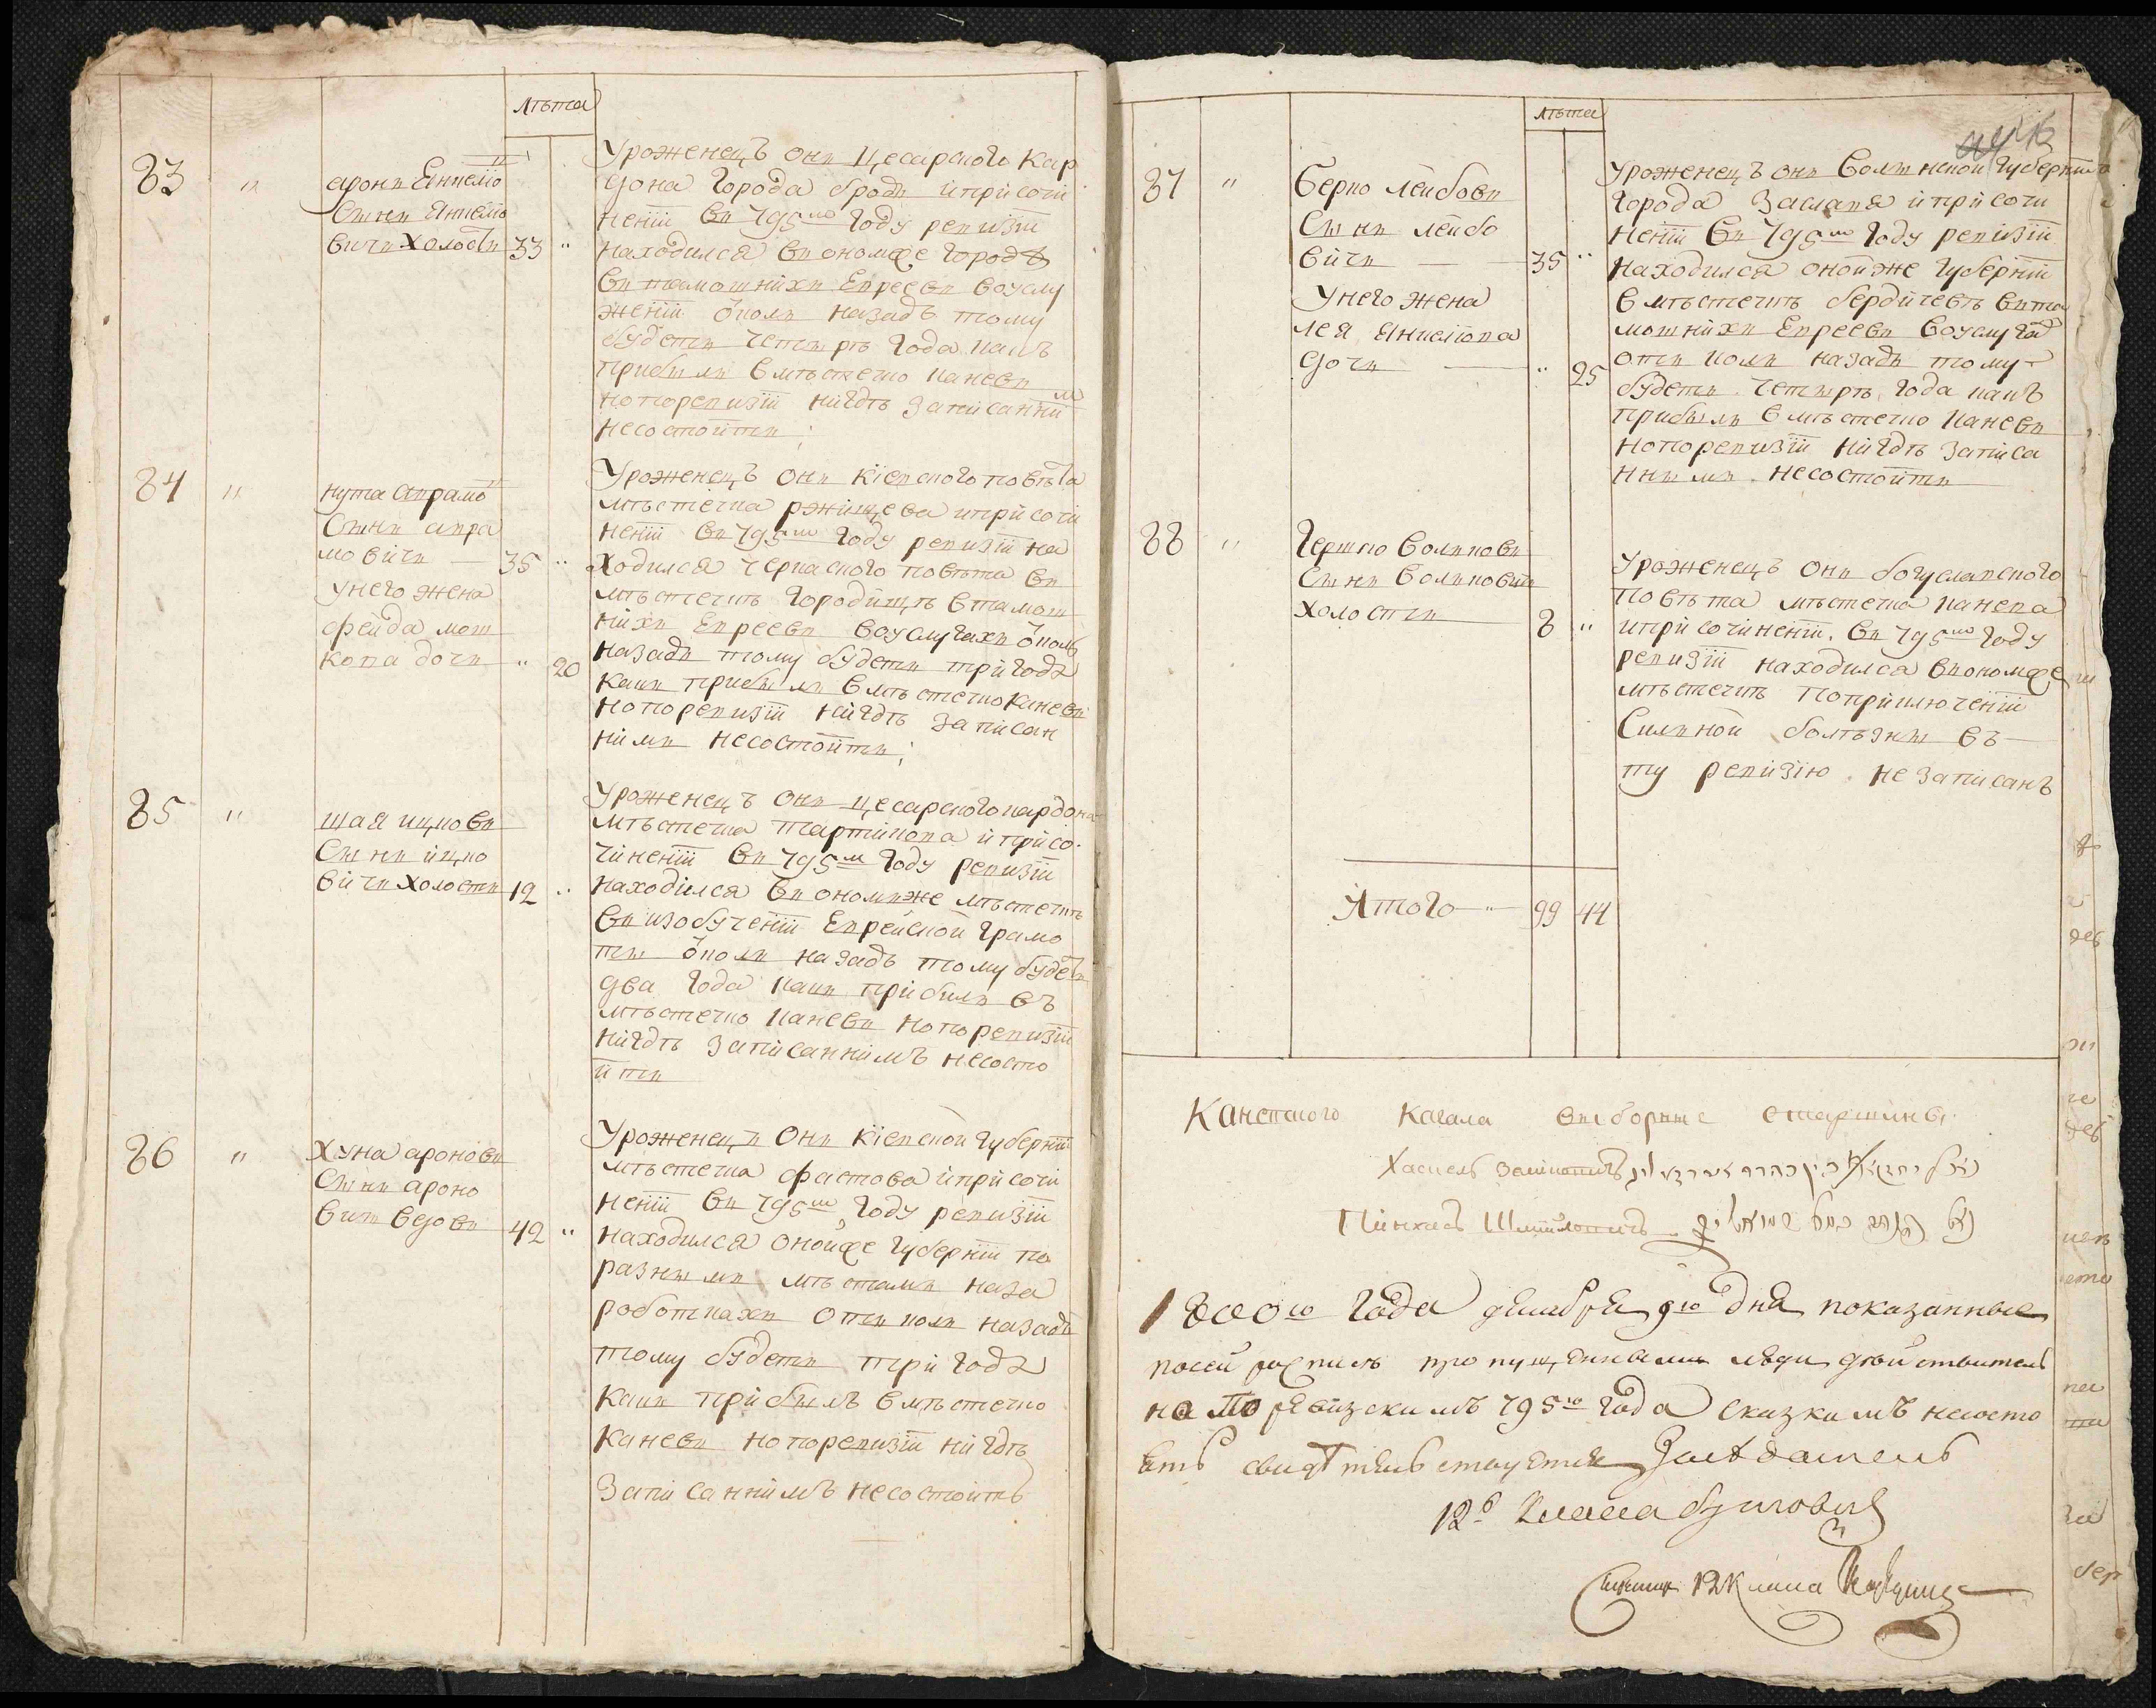 Лѣта
83 " аронъ Янкелю
сынъ Янкеле
вичъ холостъ 33 "
Уроженецъ онъ цесарского Кар
дона города бродъ и при сочи
нении въ 795мъ году ревизіи
находился въ ономже городѣ
въ тамошнихъ Евреевъ воуслу
женіи
назадъ тому
будетъ четыре года какъ
прибылъ в мѣстечко каневъ
но по ревизіи нигдѣ записаннымъ
несостоитъ;
84 " нута аврамо
сынъ авра
мовичъ — 35 "
унего жена
фейда мош
кова дочь " 20
Уроженецъ онъ кіевского повѣта
мѣстечка ржищева ипри сочи
неніи въ 795мъ году ревизіи на
ходился черкаского повѣта въ
мѣстечкѣ городищѣ в тамош
нихъ Евреевъ воуслугахъ
назадъ тому будетъ три года
какъ прибылъ в мѣстечко каневъ
но по ревизіи нигдѣ записан
нимъ несостоитъ;
85 " шая ицковъ
сынъ ицко
вичъ холостъ 12 "
Уроженецъ онъ цесарского кардона
мѣстечка и при со
чиненіи въ 795м году ревизіи
находился въ ономъже мѣстечкѣ
въ изобученіи Еврейской грамо
ты назадъ тому будетъ
два года какъ прибилъ въ
мѣстечко каневъ но по ревизіи
нигдѣ записаннимъ несосто
итъ
86 " Хуна ароновъ
сынъ ароно
вичъ вдовъ 42 "
Уроженецъ онъ кіевской губерніи
мѣстечка фастова и при сочи
неніи въ 795мъ году ревизіи
находился онойже губерніи по
разнымъ мѣстамъ наза
роботкахъ отколь назадъ
тому будетъ три года
какъ прибылъ в мѣстечко
каневъ но по ревизіи нигдѣ
записаннимъ несостоитъ
Лѣта
87 " Берко лейбовъ
сынъ лейбо
вичъ — 35 "
унего жена
лея Янкелюва
дочь — " 25
Уроженецъ онъ волынской губерніи
города заслава и при сочи
неніи въ 795мъ году ревизіи
находился онойже губерніи
в мѣстечкѣ бердичевѣ въ та
мошнихъ Евреевъ воуслугахъ
отколь назадъ тому
будетъ четыре года какъ
прибылъ в мѣстечко каневъ
но по ревизіи нигдѣ записа
ннымъ несостоитъ
88 " Гершко волковъ
сынъ волковичъ
холостъ 8 "
Уроженецъ онъ богуславского
повѣта мѣстечка канева
ипри сочиненіи въ 795мъ году
ревизіи находился въ ономже
мѣстечкѣ поприключеніи
сильной болѣзны въ
ту ревизію незаписанъ
Итого " 99 44
Каневского Кагала выборные старшины
Хаскель
Пинхасъ Шмуйловичъ
1800го года декабря 9го дня показанные
посей росписѣ пропущенными люди дѣйствитель
но по ревизскимъ 795го года сказкамъ несосто
ятъ свидѣтельствуетъ Засѣдатель
12го Класа
12 Класа